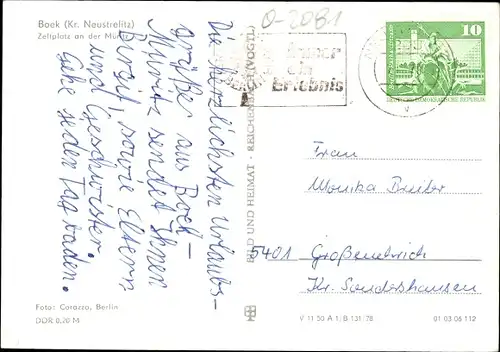 Boek (Kr. Neustrelitz)
Zeltplatz an der Müritz
O-2081
immer
ein
Erlebnis
10
DEUTSCHE DEMOKRATISCHE REPUBLIK
Die herzlichsten Urlaubs-
Grüße aus Boek-
Müritz sendet Ihnen
Birgit, sowie Eltern
und Geschwister.
Gehe jeden Tag baden.
BILD UND HEIMAT · REICHENBACH (VOGTL)
Frau
Monika
5401 Großenehrich
Kr. Sondershausen
Foto: Corazza, Berlin
DDR 0,20 M
V 11 50 A 1/B 131/78
01 03 06 112